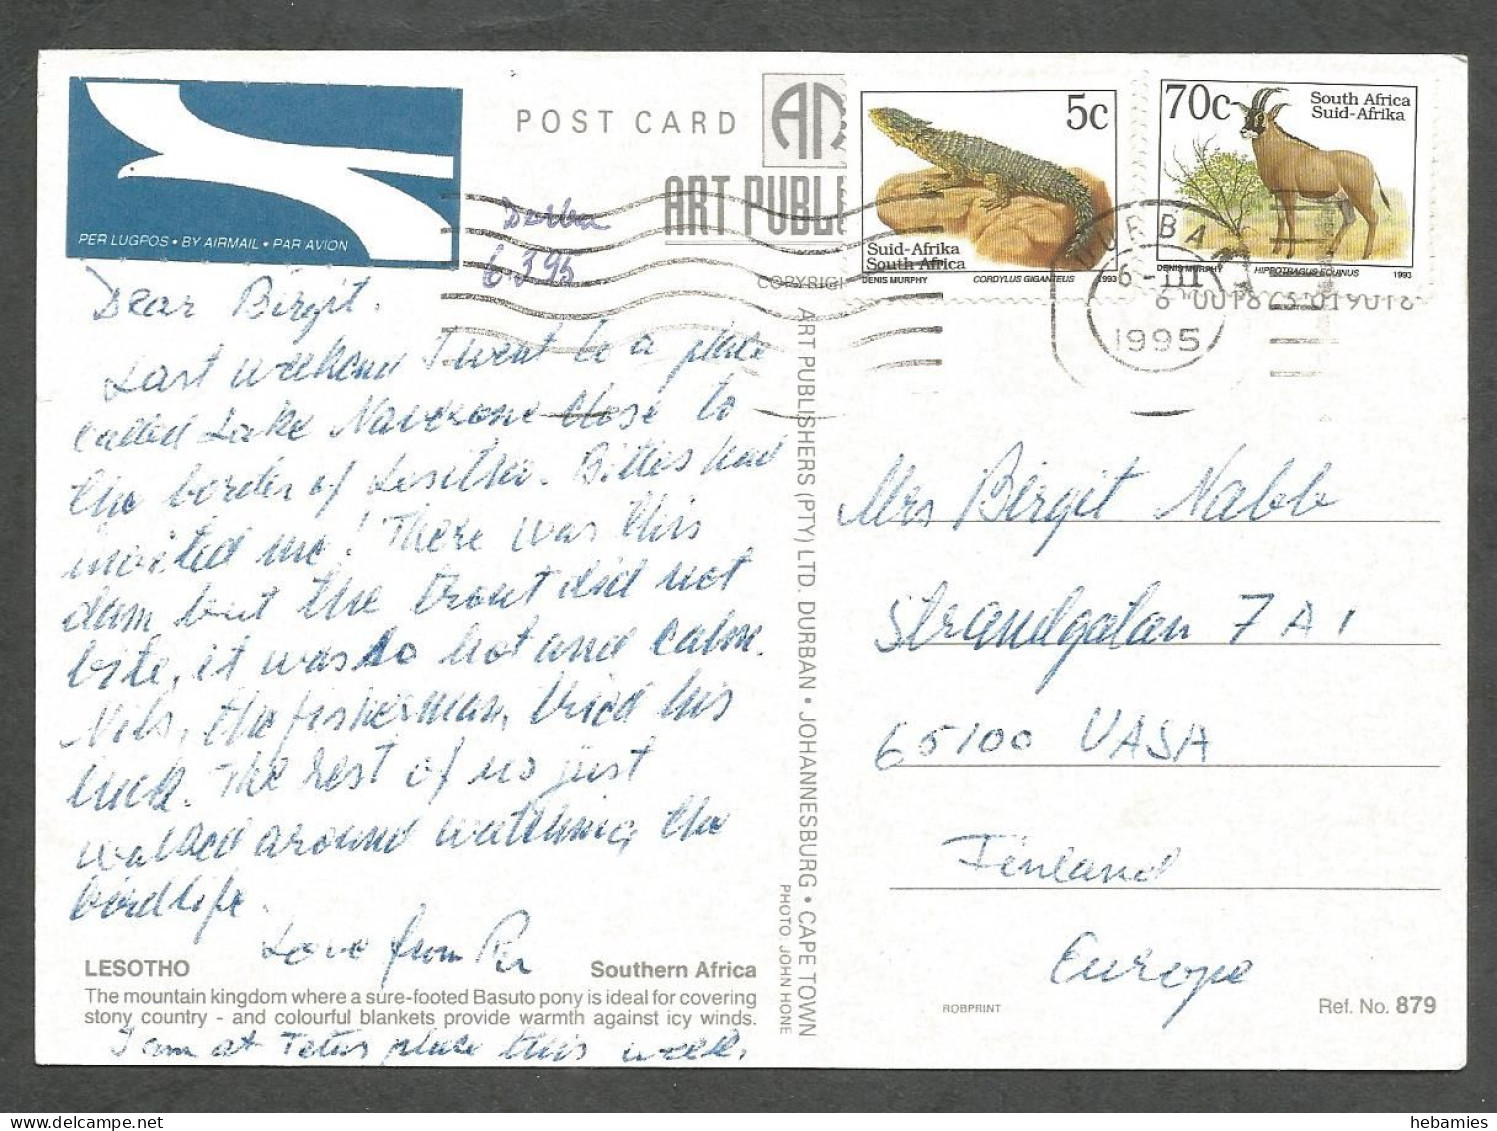 PER LUGPOS • BY AIRMAIL • PAR AVION
POST CARD
ART PUBL
COPYRIGH
5c
Suid-Afrika
South Africa
DENIS MURPHY CORDYLUS GIGANTEUS 1993
70c South Africa
Suid-Afrika
DENIS MURPHY HIPPOTRAGUS EQUINUS 1993
DURBAN
6-III
1995
Durban
6.3.95
Dear Birgit.
Last weekend I went to a place
called Lake Naverone close to
the border of Lesotho. had
invited me! There was this
dam but the trout did not
bite, it was so hot and calm.
Nils, the fisherman, tried his
luck. The rest of us just
walked around watching the
birdlife.
Love from
LESOTHO Southern Africa
The mountain kingdom where a sure-footed Basuto pony is ideal for covering
stony country - and colourful blankets provide warmth against icy winds.
I am at place this week.
ART PUBLISHERS (PTY) LTD. DURBAN • JOHANNESBURG • CAPE TOWN
PHOTO: JOHN HONE
Mrs Birgit Nabb
Strandgatan 7 A 1
65100 VASA
Finland
Europe
ROBPRINT
Ref. No. 879
hebamies